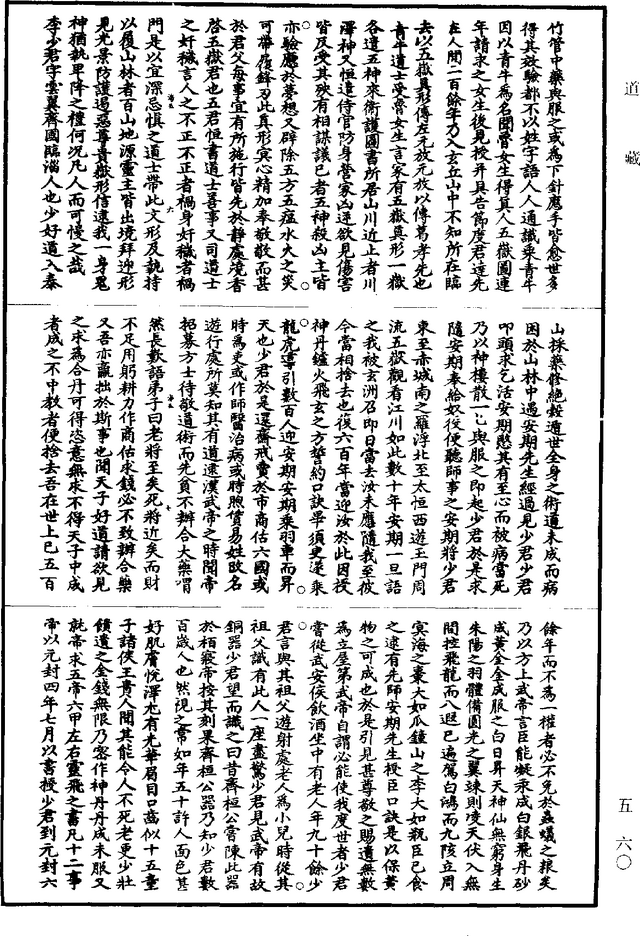 道藏
五 六〇
竹管中藥與服之或為下針應手皆愈世多
得其效驗都不以姓字語人人通識乘青牛
因以青牛為名聞魯女生得真人五嶽圖連
年請求之女生後見授并具告節度君達先
在人間二百餘年乃入玄丘山中不知所在臨
去以五嶽真形傳左元放元放以傳葛孝先也
青牛道士受魯女生言家有五嶽真形一嶽
各遣五神來衛護圖書所居山川近止者川
澤神又恒遣侍官防身營家凶逆欲見傷害
皆反受其殃有相謀議己者五神殺凶主皆
亦驗應於夢想又辟除五方五瘟水火之災
可帶履鋒刃此真形冥心精加奉敬敬而甚
於君父每事宜有所施行皆先於靜處燒香
啓五嶽君也五君恒書道士善事又司道士
之奸穢言人之不正不正者禍身奸穢者禍
門是以宜深忌慎之道士帶此文形及執持
以履山林者百山地源靈主皆出境拜迎形
見光景防護過惡尊貴嶽形信遠我一身鬼
神猶執卑降之禮何況凡人而可慢之哉
李少君字雲翼齊國臨淄人也少好道入泰
山採藥修絶穀遁世全身之術道未成而病
困於山林中遇安期先生經過見少君少君
叩頭求乞活安期愍其有至心而被病當死
乃以神樓散一匕與服之即起少君於是求
隨安期奉給奴役使聽師事之安期將少君
東至赤城南之羅浮北至太恒西遊玉門周
流五嶽觀看江川如此數十年安期一旦語
之我被玄洲召即日當去汝未應隨我至彼
今當相捨去也復六百年當迎汝於此因授
神丹鑪火飛玄之方誓約口訣畢須臾還乘
龍虎導引數百人迎安期安期乘羽車而昇
天也少君於是還齋戒賣於市商估六國或
時為吏或作師醫治病或時煦賃易姓改名
遊行處所莫知其有道逮漢武帝之時聞帝
招募方士待敬道術而先貧不辦合大藥喟
然長歎語弟子曰老將至矣死將近矣而財
不足用躬耕力作商估求錢必不致辦合藥
又吾亦羸拙於斯事也聞天子好道請欲見
之求為合丹可得恣意無求不得天子中成
者成之不中教者便捨去吾在世上已五百
餘年而不為一權者必不免於蟲蟻之粮矣
乃以方上武帝言臣能凝汞成白銀飛丹砂
成黃金金成服之白日昇天神仙無窮身生
朱陽之羽體備圓光之翼竦則凌天伏入無
間控飛龍而八遐已遍駕白鴻而九陔立周
冥海之棗大如瓜鍾山之李大如瓶臣已食
之遂有先師安期先生授臣口訣是以保黃
物之可成也於是引見甚尊敬之賜遺無數
為立屋第武帝自謂必能使我度世者少君
嘗從武安侯飲酒坐中有老人年九十餘少
君言與其祖父遊射處老人為小兒時從其
祖父識有此人一座盡驚少君見武帝有故
銅器少君望而識之曰昔齊桓公嘗陳此器
於柏寢帝按其刻果齊桓公器乃知少君數
百歲人也然視之常如年五十許人面色甚
好肌膚悅澤尤有光華眉目口齒似十五童
子諸侯王貴人聞其能令人不死老更少壯
饋遺之金錢無限乃密作神丹丹成未服又
就帝求五帝六甲左右靈飛之書凡十二事
帝以元封四年七月以書授少君到元封六